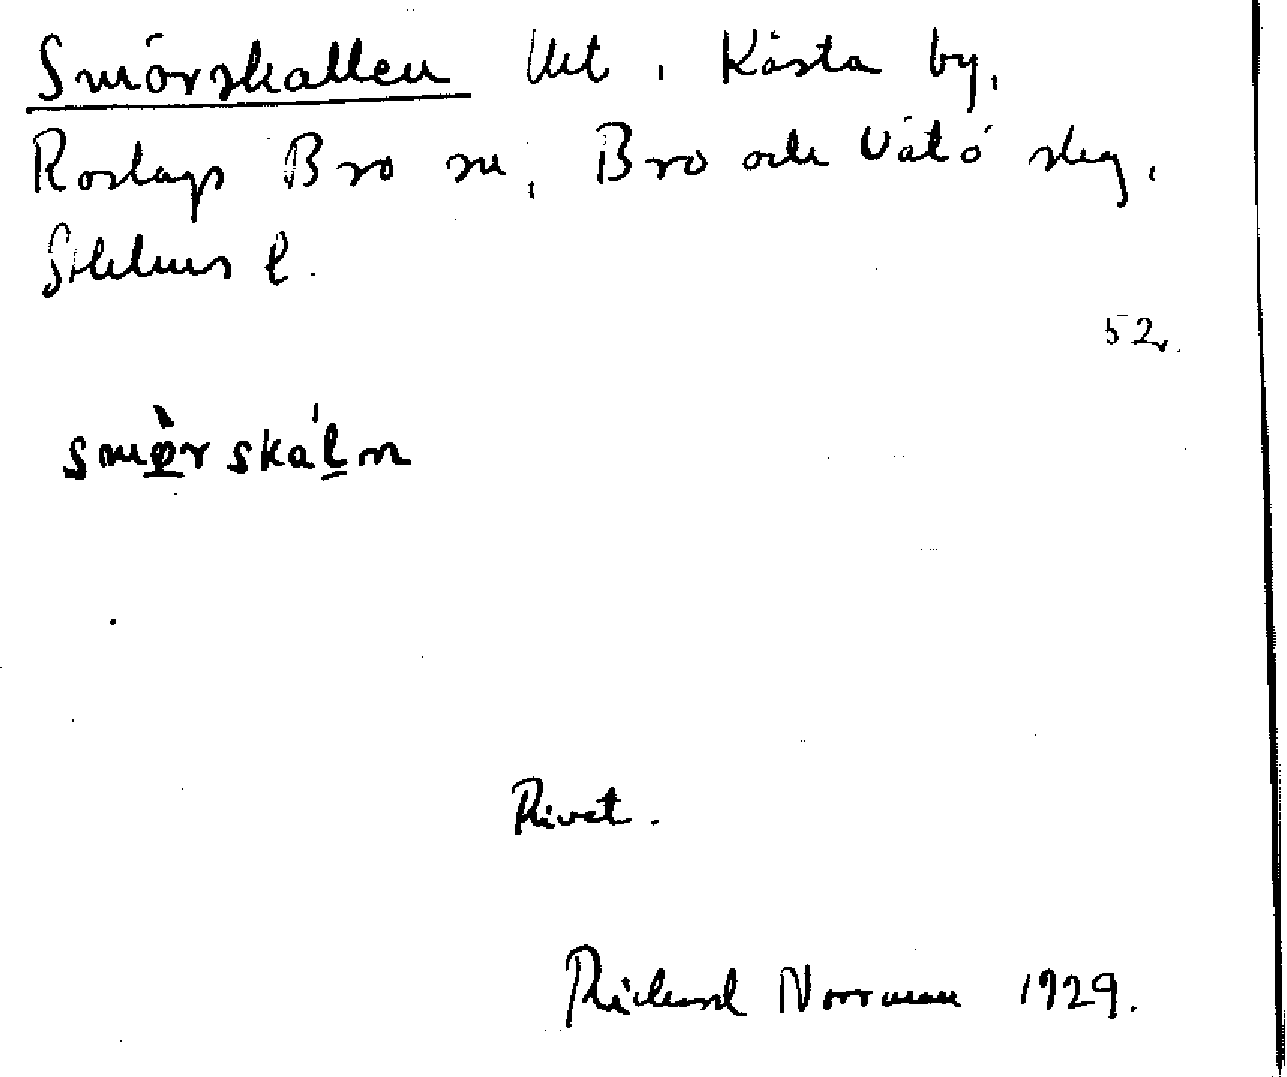 Smörskallen Utt, Kåsta by,
Roslags Bro sn, Bro och Vätö skg,
Sthlms l.
52.
smö̀rskál̠n
Rivet.
Richard Norrman 1929.